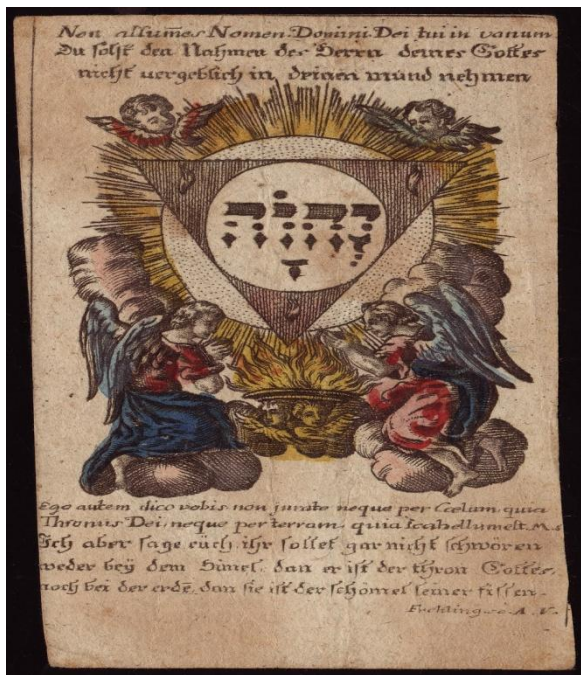 Non assumes Nomen Domini Dei tui in vanum
Du solst den Nahmen des Herrn deines Gottes
nicht vergeblich in deinen mund nehmen
יְהוָֹה
Ego autem dico vobis non jurate neque per Cœlum quia
Thronus Dei, neque per terram quia scabellum est
Ich aber sage eüch, ihr sollet gar nicht schwören
weder beÿ dem Himel, dan er ist der thron Gottes,
noch bei der erdē, dan sie ist der schömel seiner füssen.
A. V.